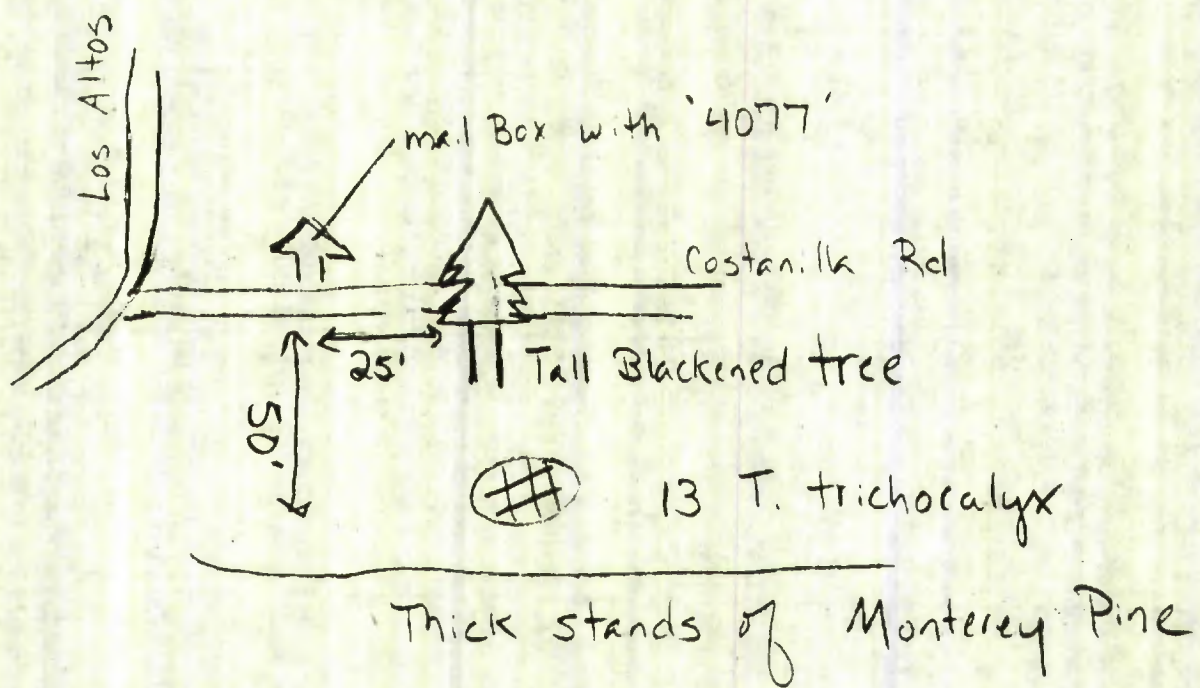 Los Altos
mail Box with '4077'
Costanilla Rd
25'
Tall Blackened tree
50'
13 T. trichocalyx
Thick stands of Monterey Pine